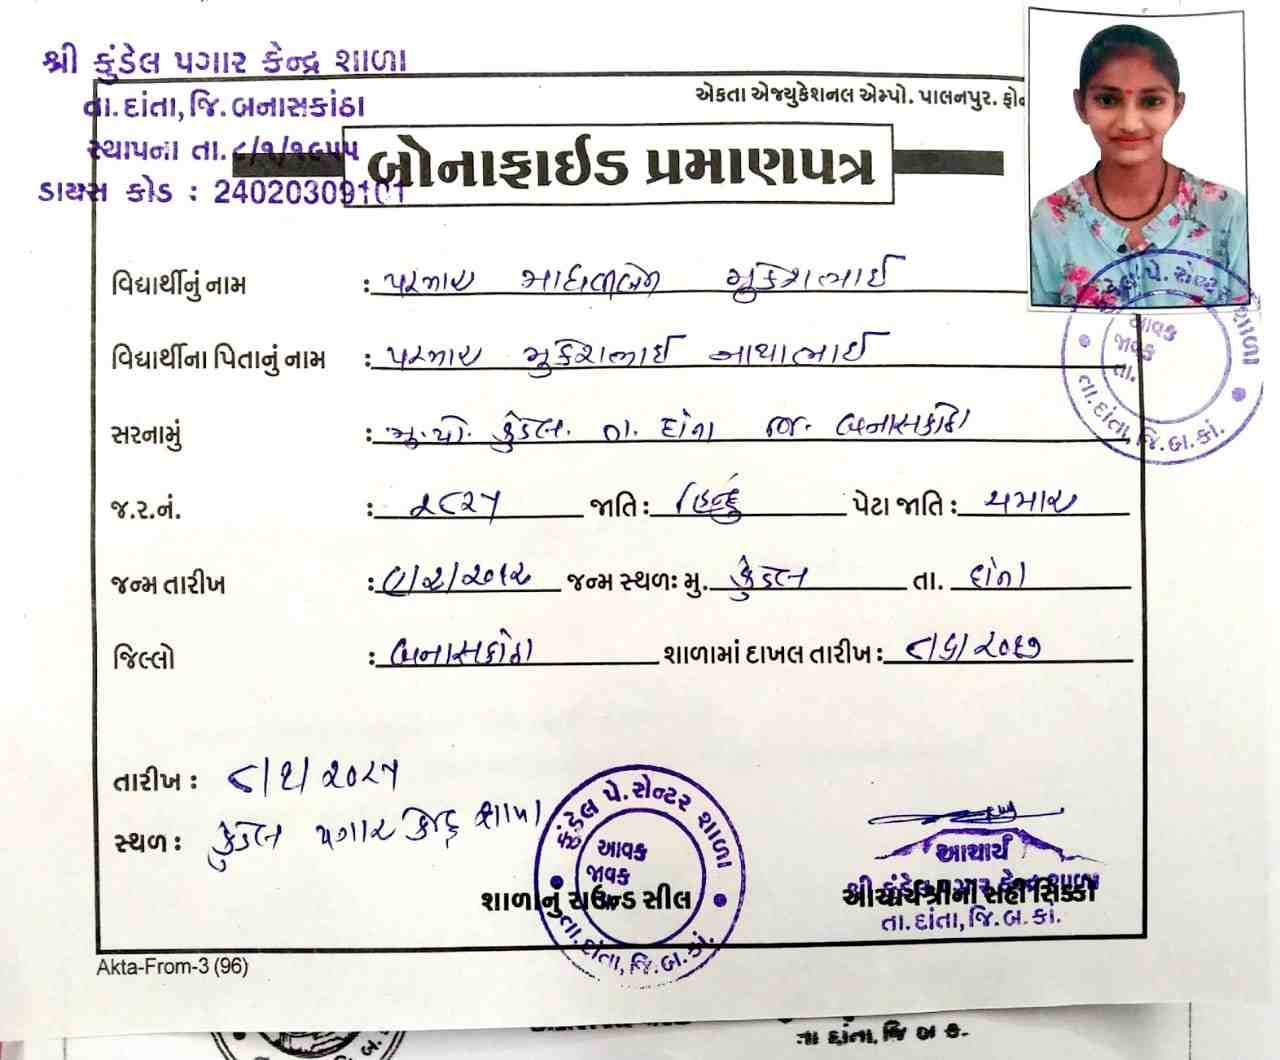 શ્રી કુંડેલ પગાર કેન્દ્ર શાળા
તા.દાંતા, જિ.બનાસકાંઠા
સ્થાપના તા.૮/૧/૧૯૫૫
ડાયસ કોડ : 24020309101
એકતા એજ્યુકેશનલ એમ્પો. પાલનપુર. ફોન
બોનાફાઈડ પ્રમાણપત્ર
વિદ્યાર્થીનું નામ : પરમાર મુકેશભાઈ
વિદ્યાર્થીના પિતાનું નામ : પરમાર મુકેશભાઈ આયાભાઈ
સરનામું : મુ.પો. કુંડેલ. તા. દાંતા જી. બનાસકાંઠા
જ.ર.નં. : ૨૮૨૫ જાતિ : હિન્દુ પેટા જાતિ : ચમાર
જન્મ તારીખ : ૮/૨/૨૦૧૨ જન્મ સ્થળઃ મુ. કુંડેલ તા. દાંતા
જિલ્લો : બનાસકાંઠા શાળામાં દાખલ તારીખ : ૮/૬/૨૦૧૭
તારીખ : ૮/૧/૨૦૨૫
સ્થળ : કુંડેલ પગાર કેન્દ્ર શાળા
કુંડેલ પે.સેન્ટર શાળા
આવક
જાવક
તા.
તા.દાંતા, જિ.બ.કાં.
કુંડેલ પે.સેન્ટર શાળા
આવક
જાવક
તા.દાંતા, જિ.બ.કાં.
શાળાનું રાઉન્ડ સીલ
આચાર્ય
શ્રી કુંડેલ પગાર કેન્દ્ર શાળા
આચાર્યશ્રીની સહી સિક્કો
તા.દાંતા, જિ.બ.કાં.
Akta-From-3 (96)
તા દાંતા, જિ બ ક.